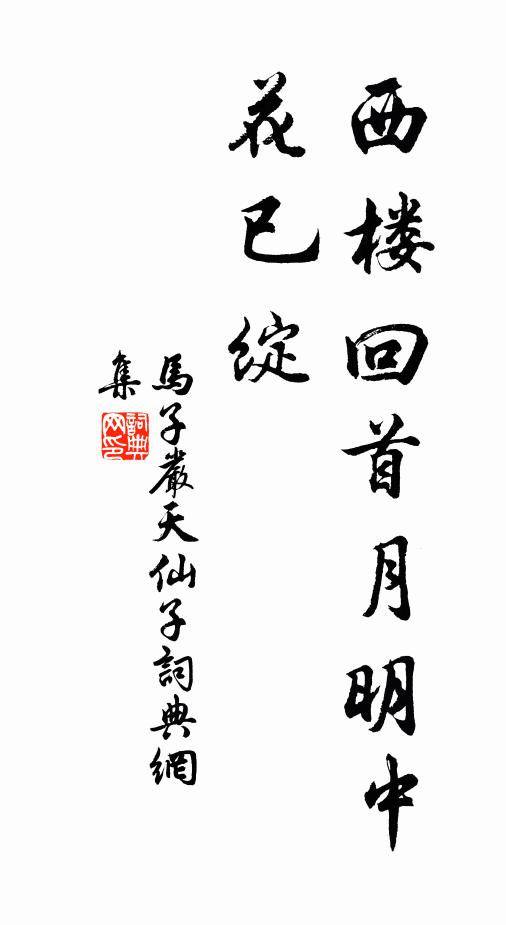 西楼回首月明中
花已绽
馬子嚴天仙子詞典網
集
詞典
网印